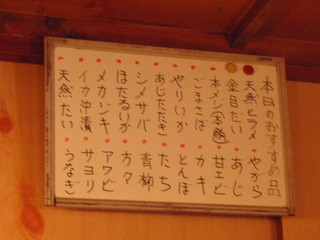 本日のおすすめ品
天然ヒラメ・やがら
金目だい・あじ
本メジ(本鮪)・甘エビ
ごまさば・カキ
やりいか・とんぼ
あじたたき・たち
シメサバ・青柳
ほたるいか・カマ
メカジキ・アワビ
イカ沖漬・サヨリ
天然たい・うなぎ